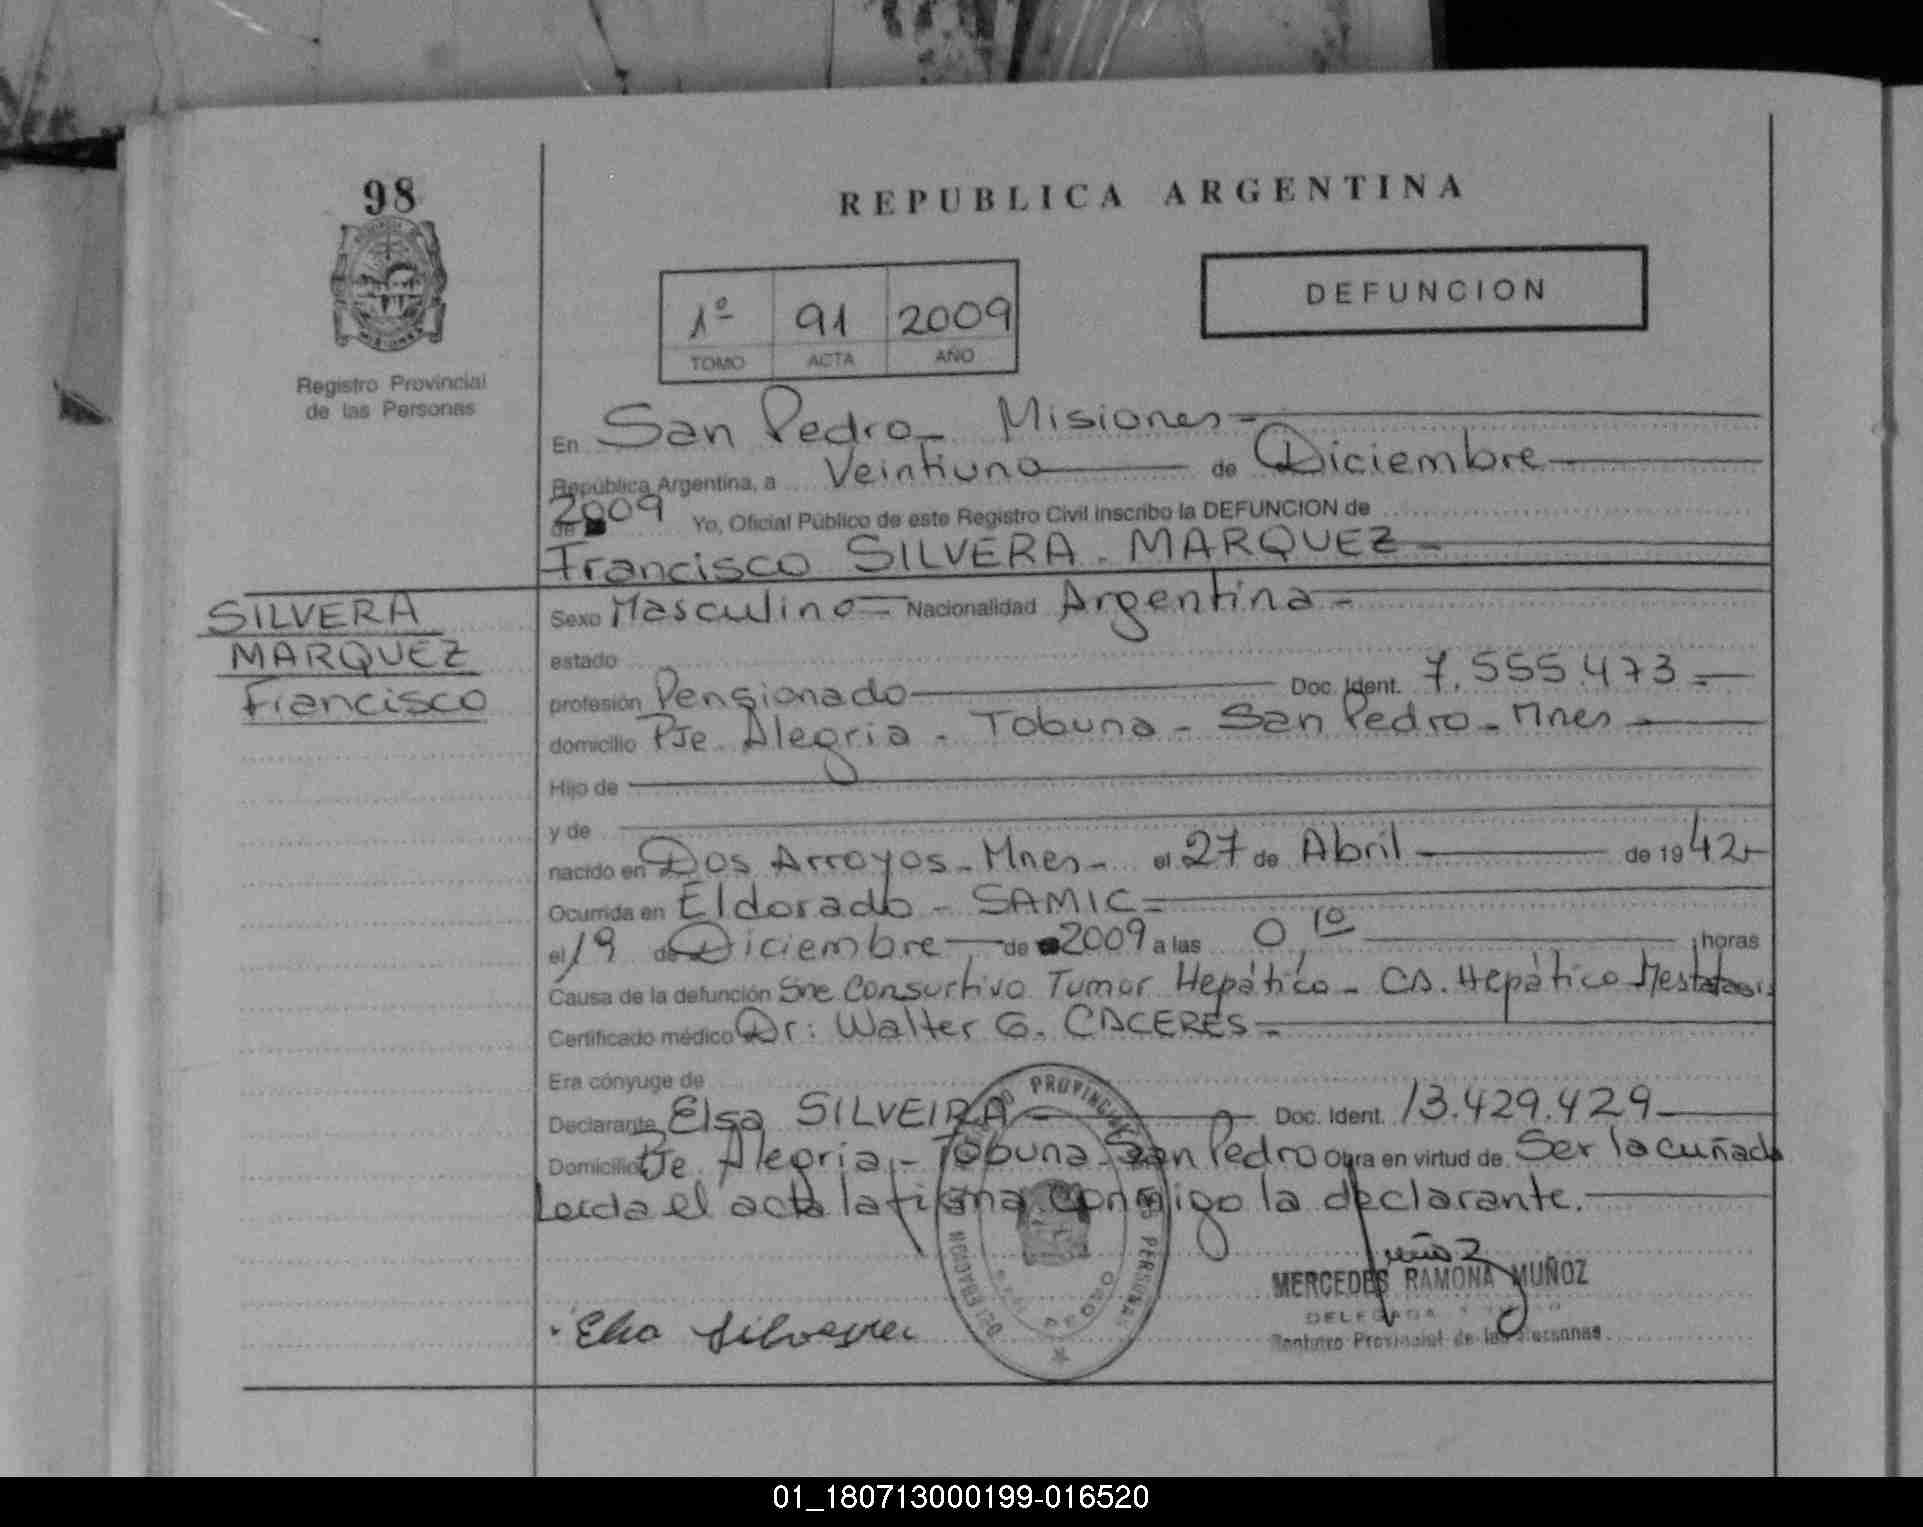 98
REPUBLICA ARGENTINA
DEFUNCION
1º 91 2009
TOMO ACTA AÑO
Registro Provincial
de las Personas
En San Pedro - Misiones
República Argentina, a Veintiuno de Diciembre
de 2009 Yo, Oficial Público de este Registro Civil inscribo la DEFUNCION de
Francisco SILVERA - MARQUEZ
SILVERA
MARQUEZ
Francisco
Sexo Masculino Nacionalidad Argentina
estado
profesión Pensionado Doc. Ident. 7.555.473
domicilio Pje Alegria - Tobuna - San Pedro - Mnes
Hijo de
y de
nacido en Dos Arroyos - Mnes - el 27 de Abril de 1942
Ocurrida en Eldorado - SAMIC
el 19 de Diciembre de 2009 a las 0,10 horas
Causa de la defunción Sne Consurtivo Tumor Hepático - CA. Hepático
Certificado médico Dr: Walter G. CACERES
Era cónyuge de
Declarante Elsa SILVEIRA Doc. Ident. 13.429.429
Domicilio Pje. Alegria - Tobuna - San Pedro Obra en virtud de Ser la cuñada
Leida el acta la firma conmigo la declarante.
MERCEDES RAMONA MUÑOZ
DELEGADA
Registro Provincial de las Personas
01_180713000199-016520